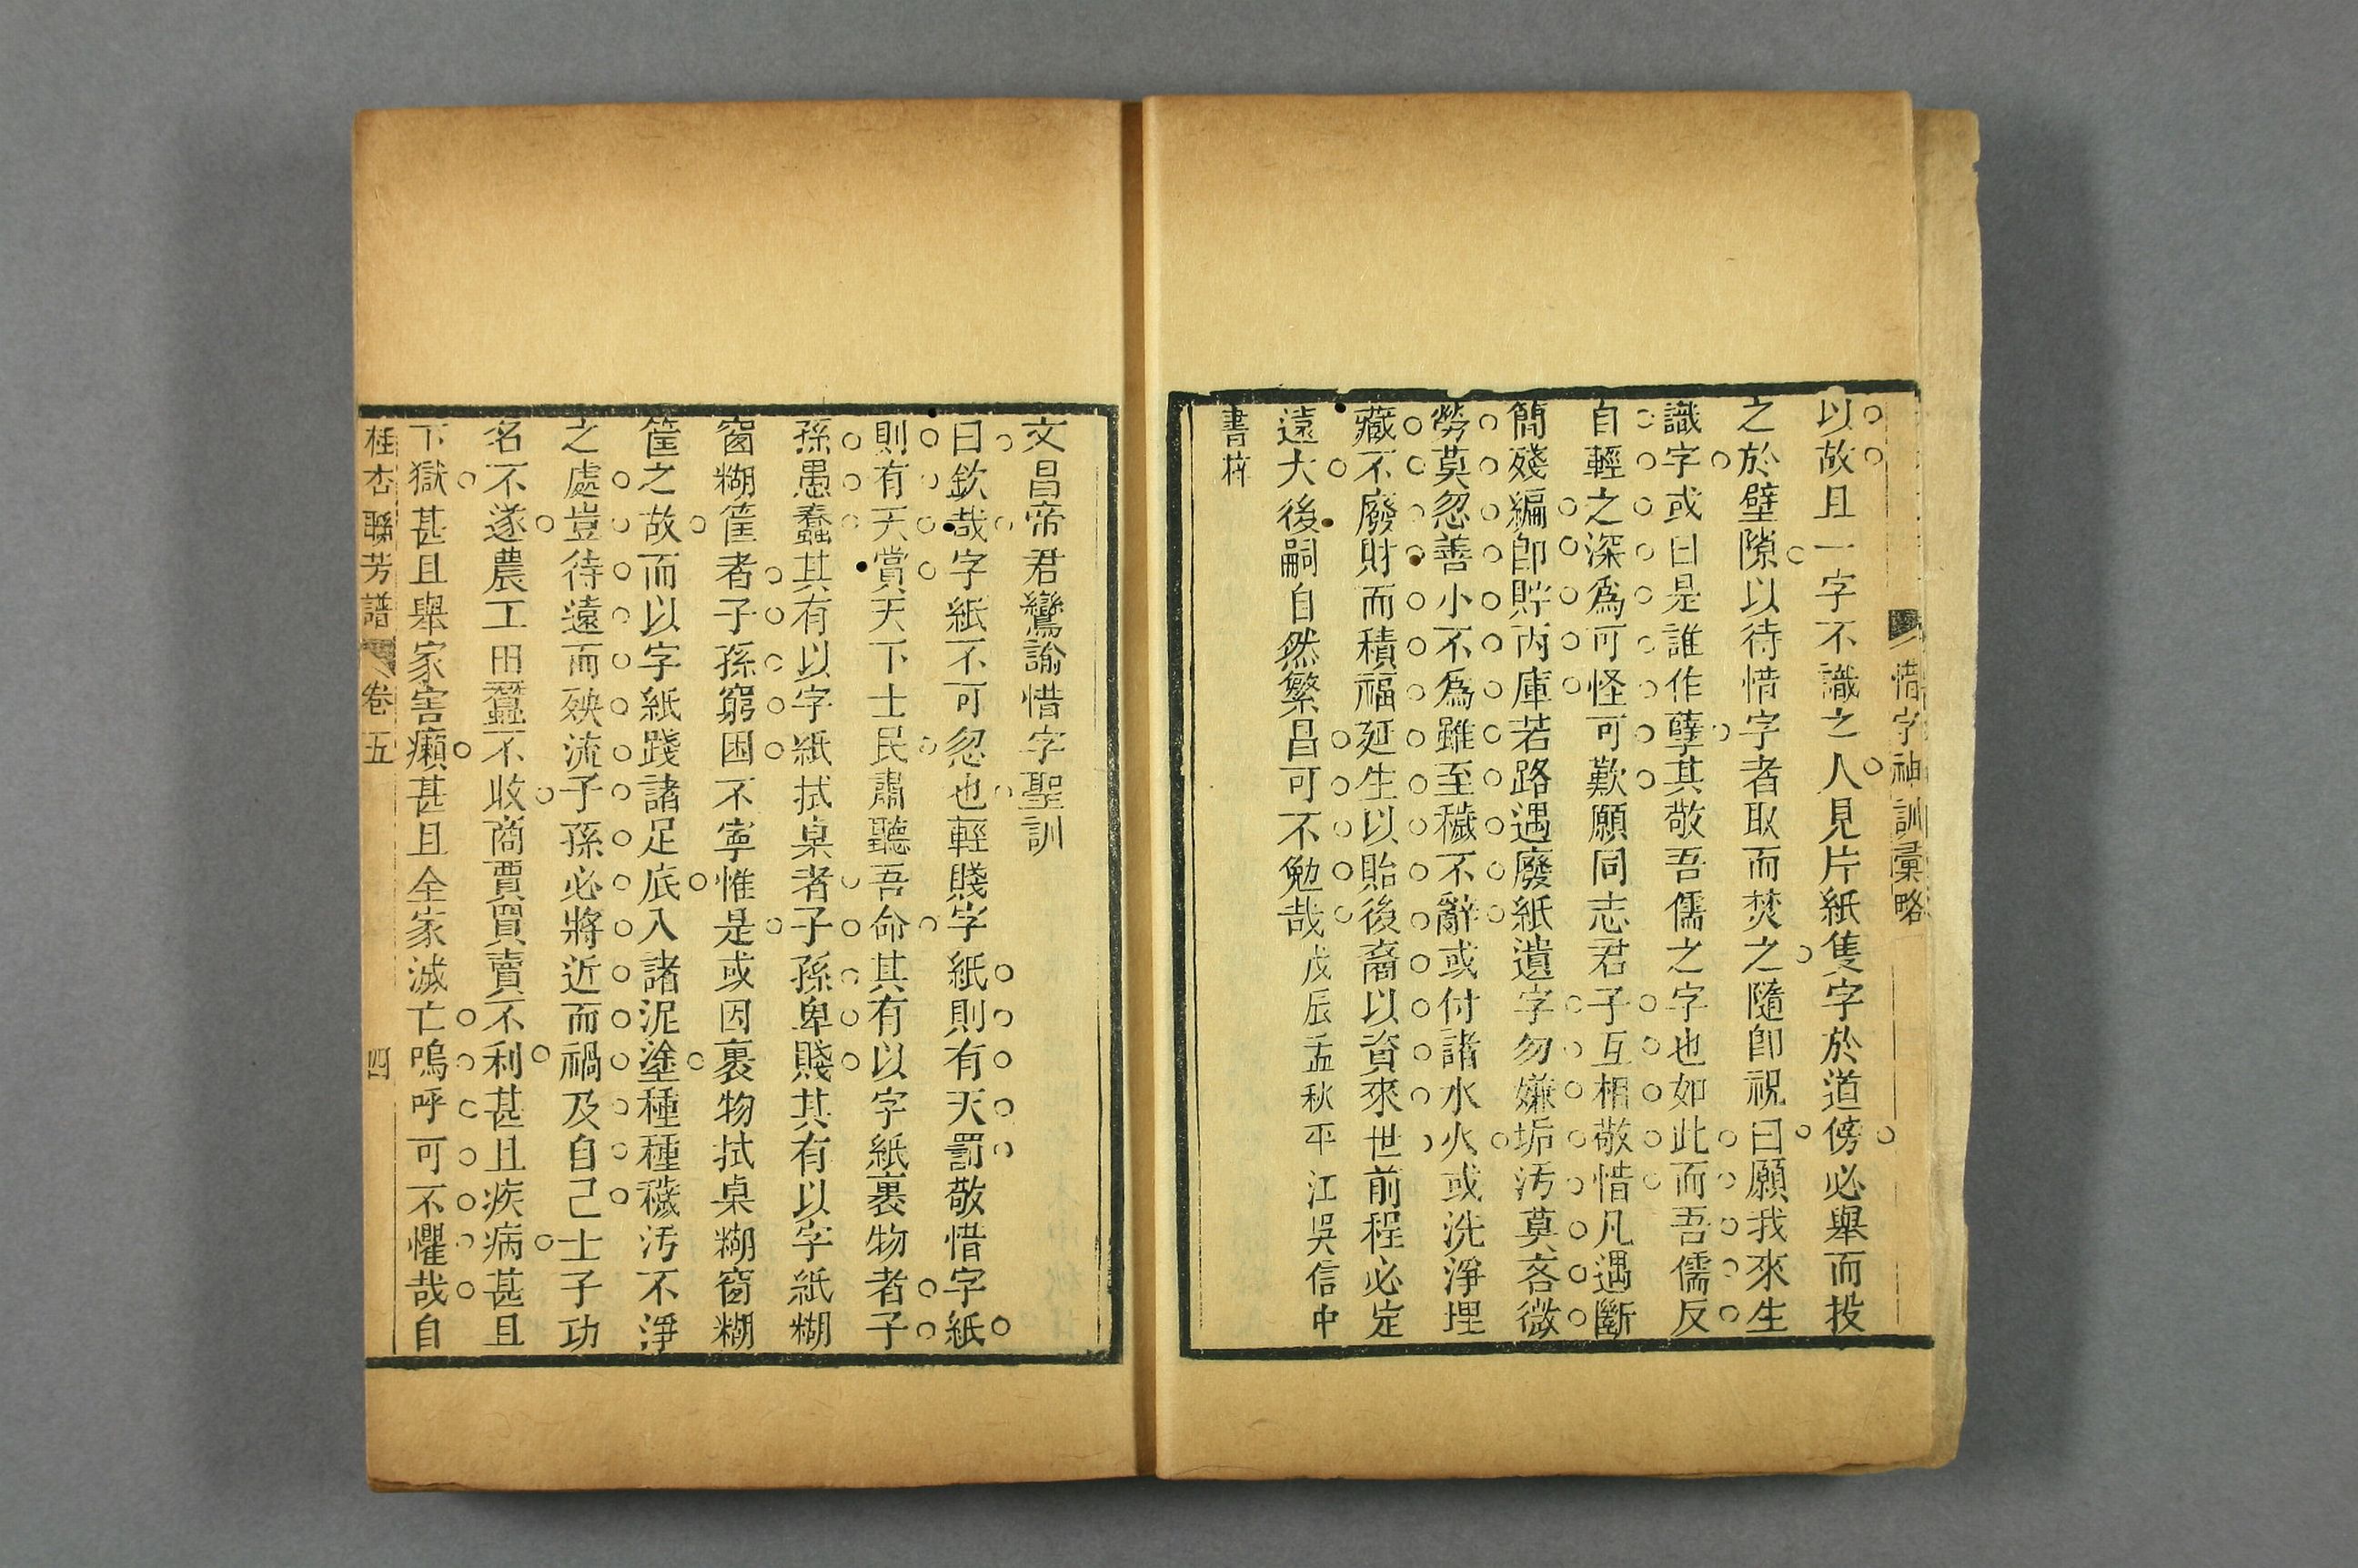 惜字神訓彙略
以故且一字不識之人見片紙隻字於道傍必舉而投
之於壁隙以待惜字者取而焚之隨卽祝曰願我來生
識字或曰是誰作孽其敬吾儒之字也如此而吾儒反
自輕之深爲可怪可歎願同志君子互相敬惜凡遇斷
簡殘編卽貯丙庫若路遇廢紙遺字勿嫌垢汚莫吝微
勞莫忽善小不爲雖至穢不辭或付諸水火或洗淨埋
藏不廢財而積福延生以貽後裔以資來世前程必定
遠大後嗣自然繁昌可不勉哉戊辰孟秋平江吳信中
書梓
文昌帝君鸞諭惜字聖訓
曰欽哉字紙不可忽也輕賤字紙則有天罰敬惜字紙
則有天賞天下士民肅聽吾命其有以字紙裹物者子
孫愚蠢其有以字紙拭桌者子孫卑賤其有以字紙糊
窗糊筐者子孫窮困不寧惟是或因裹物拭桌糊窗糊
筐之故而以字紙踐諸足底入諸泥塗種種穢汚不淨
之處豈待遠而殃流子孫必將近而禍及自己士子功
名不遂農工田蠶不收商賈買賣不利甚且疾病甚且
下獄甚且舉家害癩甚且全家滅亡嗚呼可不懼哉自
桂杏聯芳譜 卷五 四